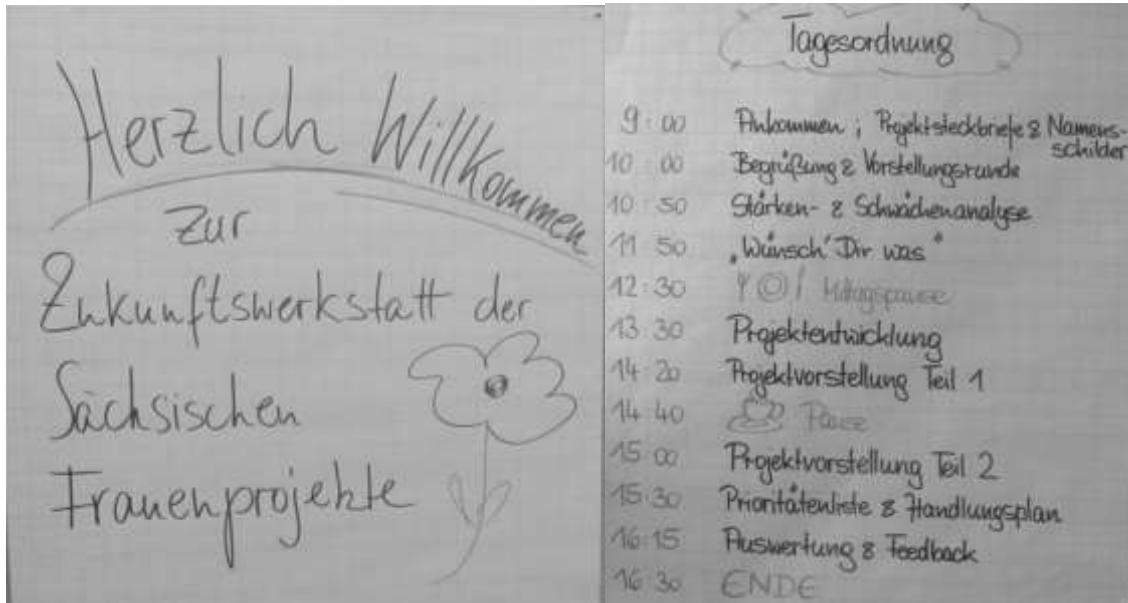 Herzlich Willkommen
zur
Zukunftswerkstatt der
Sächsischen
Frauenprojekte
Tagesordnung
9:00 Ankommen ; Projektsteckbriefe & Namens-
schilder
10:00 Begrüßung & Vorstellungsrunde
10:50 Stärken- & Schwächenanalyse
11:50 „Wünsch' Dir was"
12:30 Mittagspause
13:30 Projektentwicklung
14:20 Projektvorstellung Teil 1
14:40 Pause
15:00 Projektvorstellung Teil 2
15:30 Prioritätenliste & Handlungsplan
16:15 Auswertung & Feedback
16:30 ENDE